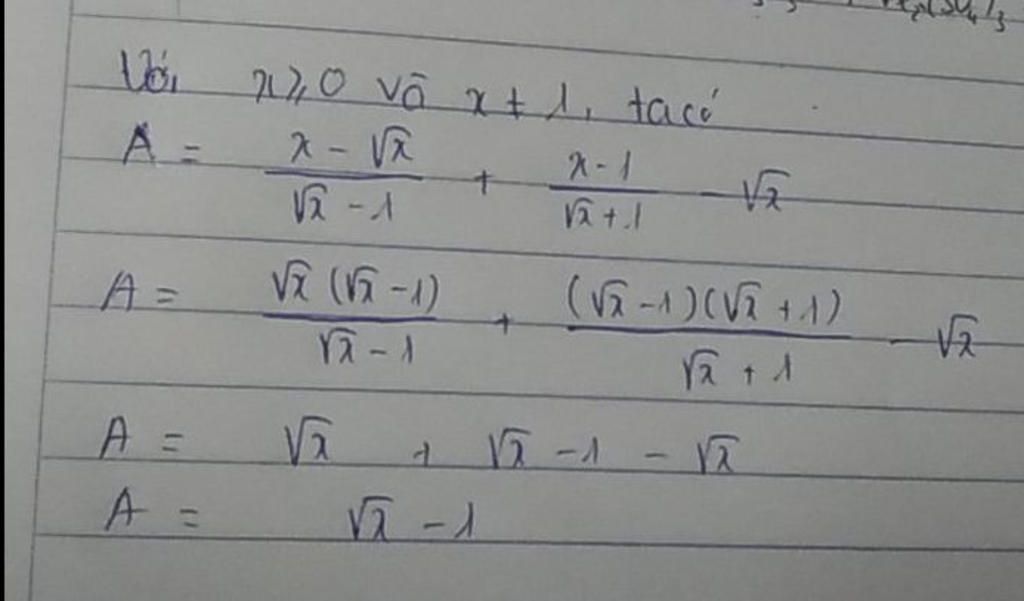 Với x ≥ 0 và x ≠ 1, ta có
A = (x - √x)/(√x - 1) + (x - 1)/(√x + 1) - √x
A = (√x (√x - 1))/(√x - 1) + ((√x - 1)(√x + 1))/(√x + 1) - √x
A = √x + √x - 1 - √x
A = √x - 1